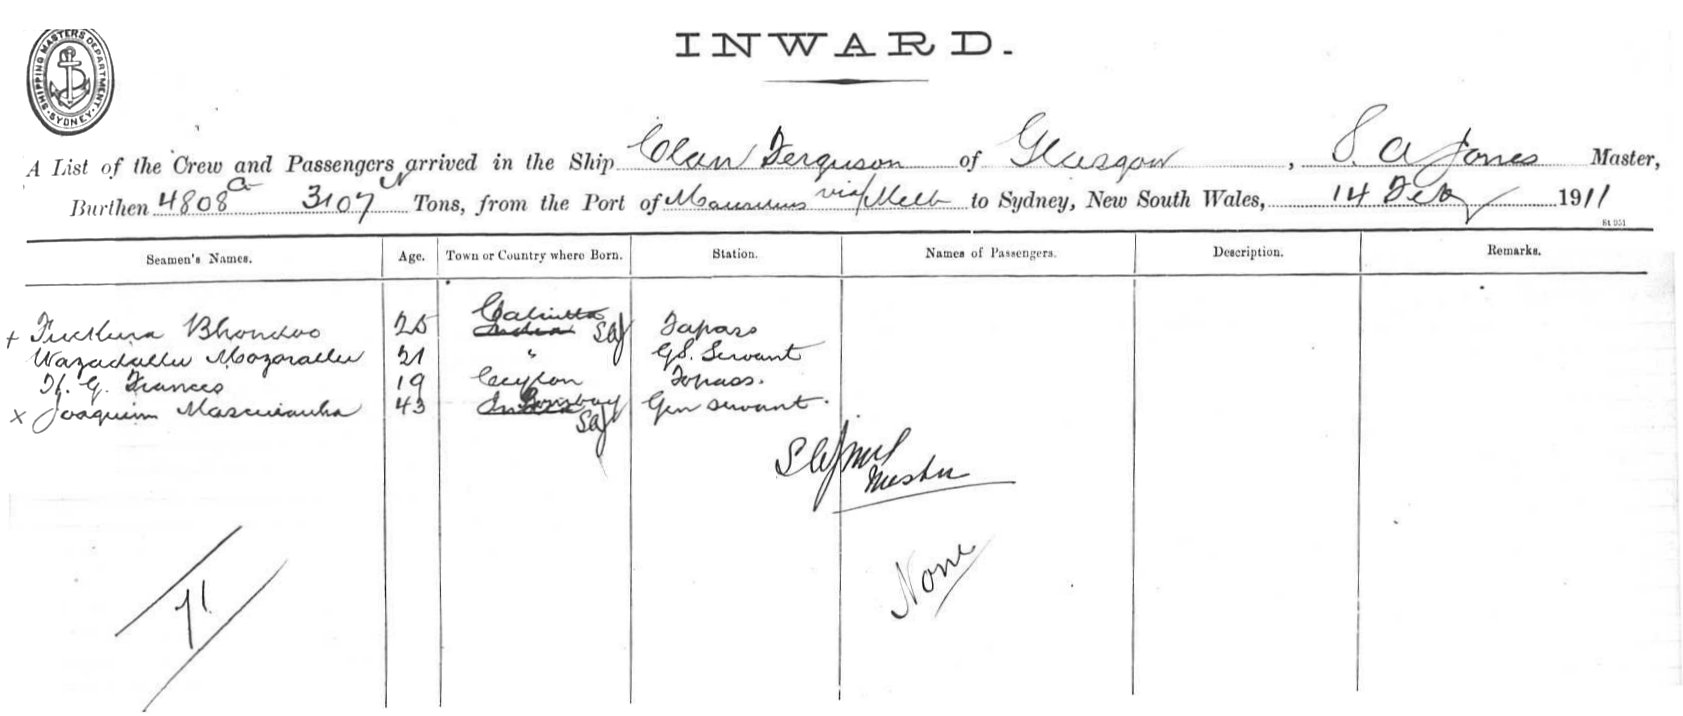 SHIPPING MASTERS DEPARTMENT. SYDNEY.
INWARD.
A List of the Crew and Passengers arrived in the Ship Clan Ferguson of Glasgow, S. A Jones Master,
Burthen 4808 3107 Tons, from the Port of Mauritius via Melb to Sydney, New South Wales, 14 Feb 1911
St 951
Seamen's Names. Age. Town or Country where Born. Station. Names of Passengers. Description. Remarks.
Calcutta
+ Fuckura Bhondoo 25 India Topass
Wazadullu Mozorallu 21 " GS. Servant
H. G. Frances 19 Ceylon Topass.
Bombay
x Joaquim 43 India Gen servant.
Master
None
71